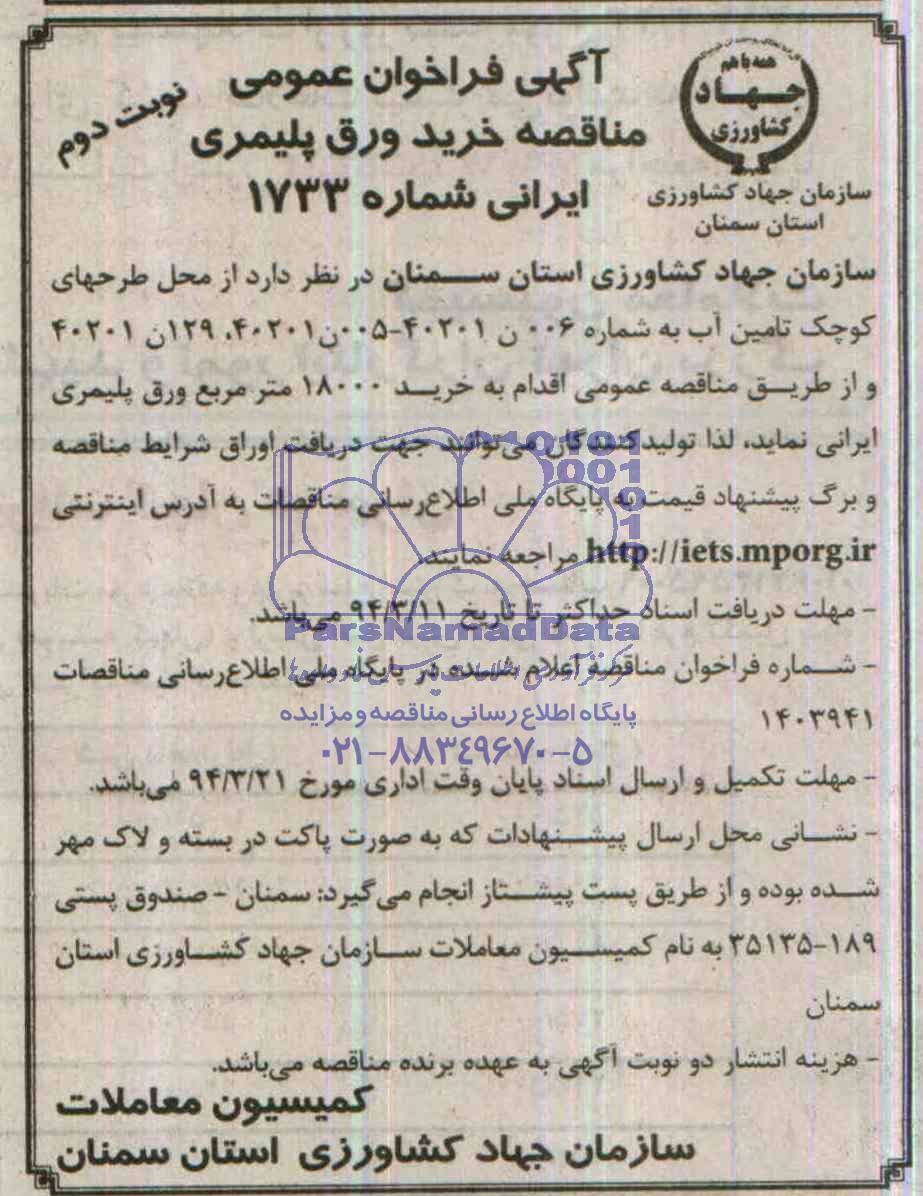 همه با هم
جهاد
کشاورزی
سازمان جهاد کشاورزی
استان سمنان
آگهی فراخوان عمومی
مناقصه خرید ورق پلیمری
ایرانی شماره ۱۷۳۳
نوبت دوم
سازمان جهاد کشاورزی استان سمنان در نظر دارد از محل طرحهای
کوچک تامین آب به شماره ۰۰۶ ن ۴۰۲۰۱-۰۰۵ن۴۰۲۰۱، ۱۲۹ن ۴۰۲۰۱
و از طریق مناقصه عمومی اقدام به خرید ۱۸۰۰۰ متر مربع ورق پلیمری
ایرانی نماید، لذا تولیدکنندگان می‌توانند جهت دریافت اوراق شرایط مناقصه
و برگ پیشنهاد قیمت به پایگاه ملی اطلاع‌رسانی مناقصات به آدرس اینترنتی
http://iets.mporg.ir مراجعه نمایند.
- مهلت دریافت اسناد حداکثر تا تاریخ ۹۴/۳/۱۱ می‌باشد.
ParsNamadData
- شماره فراخوان مناقصه اعلام شده در پایگاه ملی اطلاع‌رسانی مناقصات
۱۴۰۳۹۴۱
پایگاه اطلاع رسانی مناقصه و مزایده
۰۲۱-۸۸۳۴۹۶۷۰-۵
- مهلت تکمیل و ارسال اسناد پایان وقت اداری مورخ ۹۴/۳/۲۱ می‌باشد.
- نشانی محل ارسال پیشنهادات که به صورت پاکت در بسته و لاک مهر
شده بوده و از طریق پست پیشتاز انجام می‌گیرد: سمنان - صندوق پستی
۳۵۱۳۵-۱۸۹ به نام کمیسیون معاملات سازمان جهاد کشاورزی استان
سمنان
- هزینه انتشار دو نوبت آگهی به عهده برنده مناقصه می‌باشد.
کمیسیون معاملات
سازمان جهاد کشاورزی استان سمنان